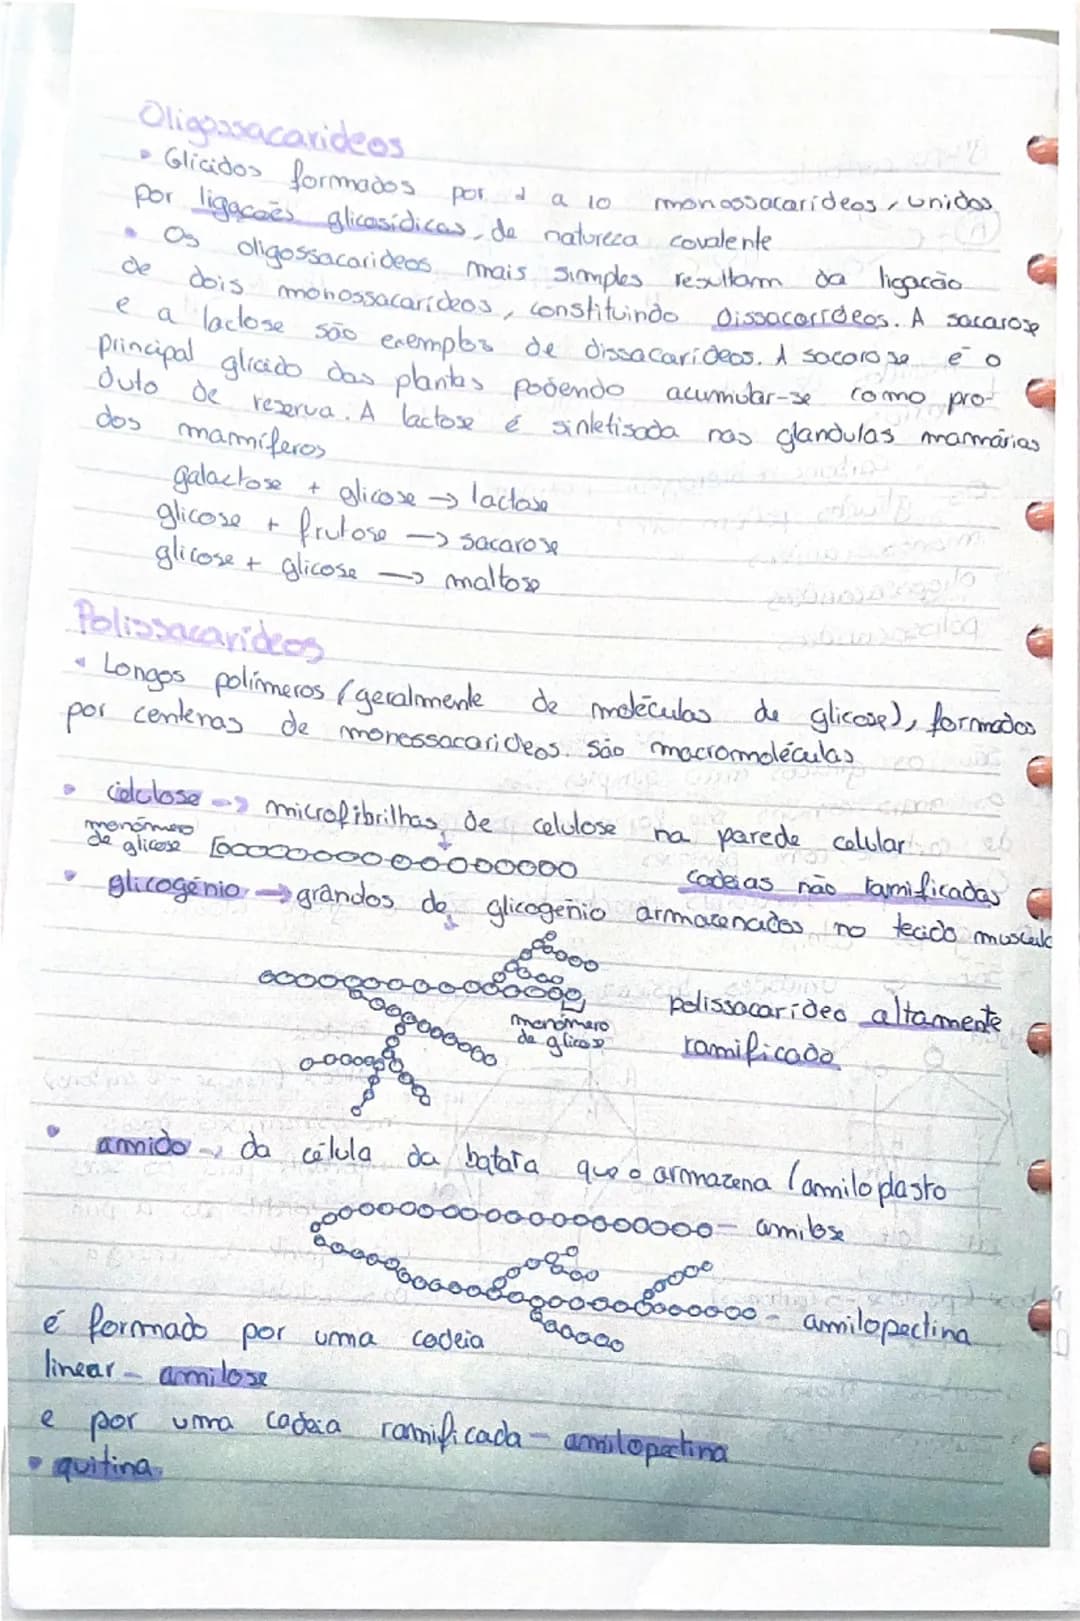 Oligossacarideos
• Glicidos formados por 2 a 10 monossacarídeos, unidos
por ligações glicosídicas, de natureza covalente
• Os oligossacarideos mais simples resultam da ligação
de dois monossacarídeos, constituindo Dissacarídeos. A sacarose
e a lactose são exemplos de dissacarídeos. A sacarose é o
principal glicido das plantas podendo acumular-se como pro-
duto de reserva. A lactose é sintetisada nas glandulas mamárias
dos mamíferos
galactose + glicose → lactose
glicose + frutose → sacarose
glicose + glicose → maltose
Polissacarídeos
• Longos polímeros (geralmente de moléculas de glicose), formados
por centenas de monossacarideos. São macromoléculas
• celulose → microfibrilhas de celulose na parede celular
monómero
de glicose
cadeias não ramificadas
• glicogénio → grândos de glicogenio armazenados no tecido muscul
monómero
de glicose
polissacarídeo altamente
ramificado
• amido → da célula da batata que o armazena (amiloplasto
- amilose
- amilopectina
é formado por uma cadeia
linear - amilose
e por uma cadeia ramificada - amilopectina
• quitina